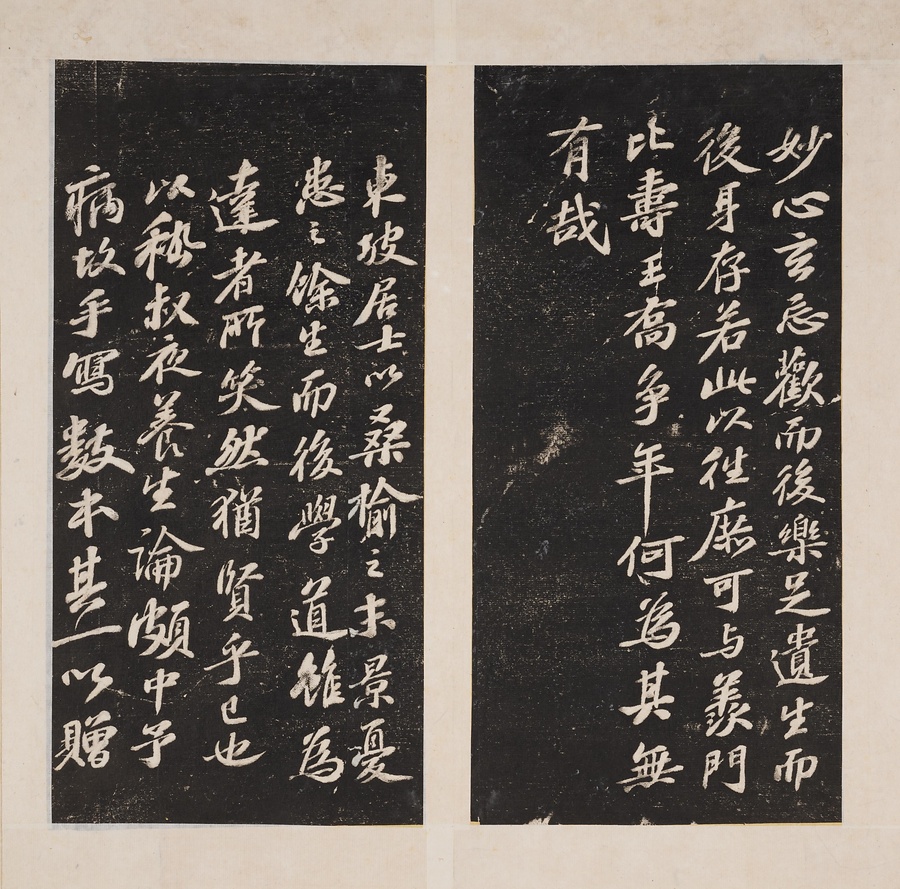 妙心玄忘歡而後樂足遺生而
後身存若此以往庶可与羨門
比壽王喬争年何為其無
有哉
東坡居士以桑榆之末景憂
患之餘生而後學道雖為
達者所笑然猶賢乎已也
以嵇叔夜養生論頗中予
病故手寫數本其一以贈